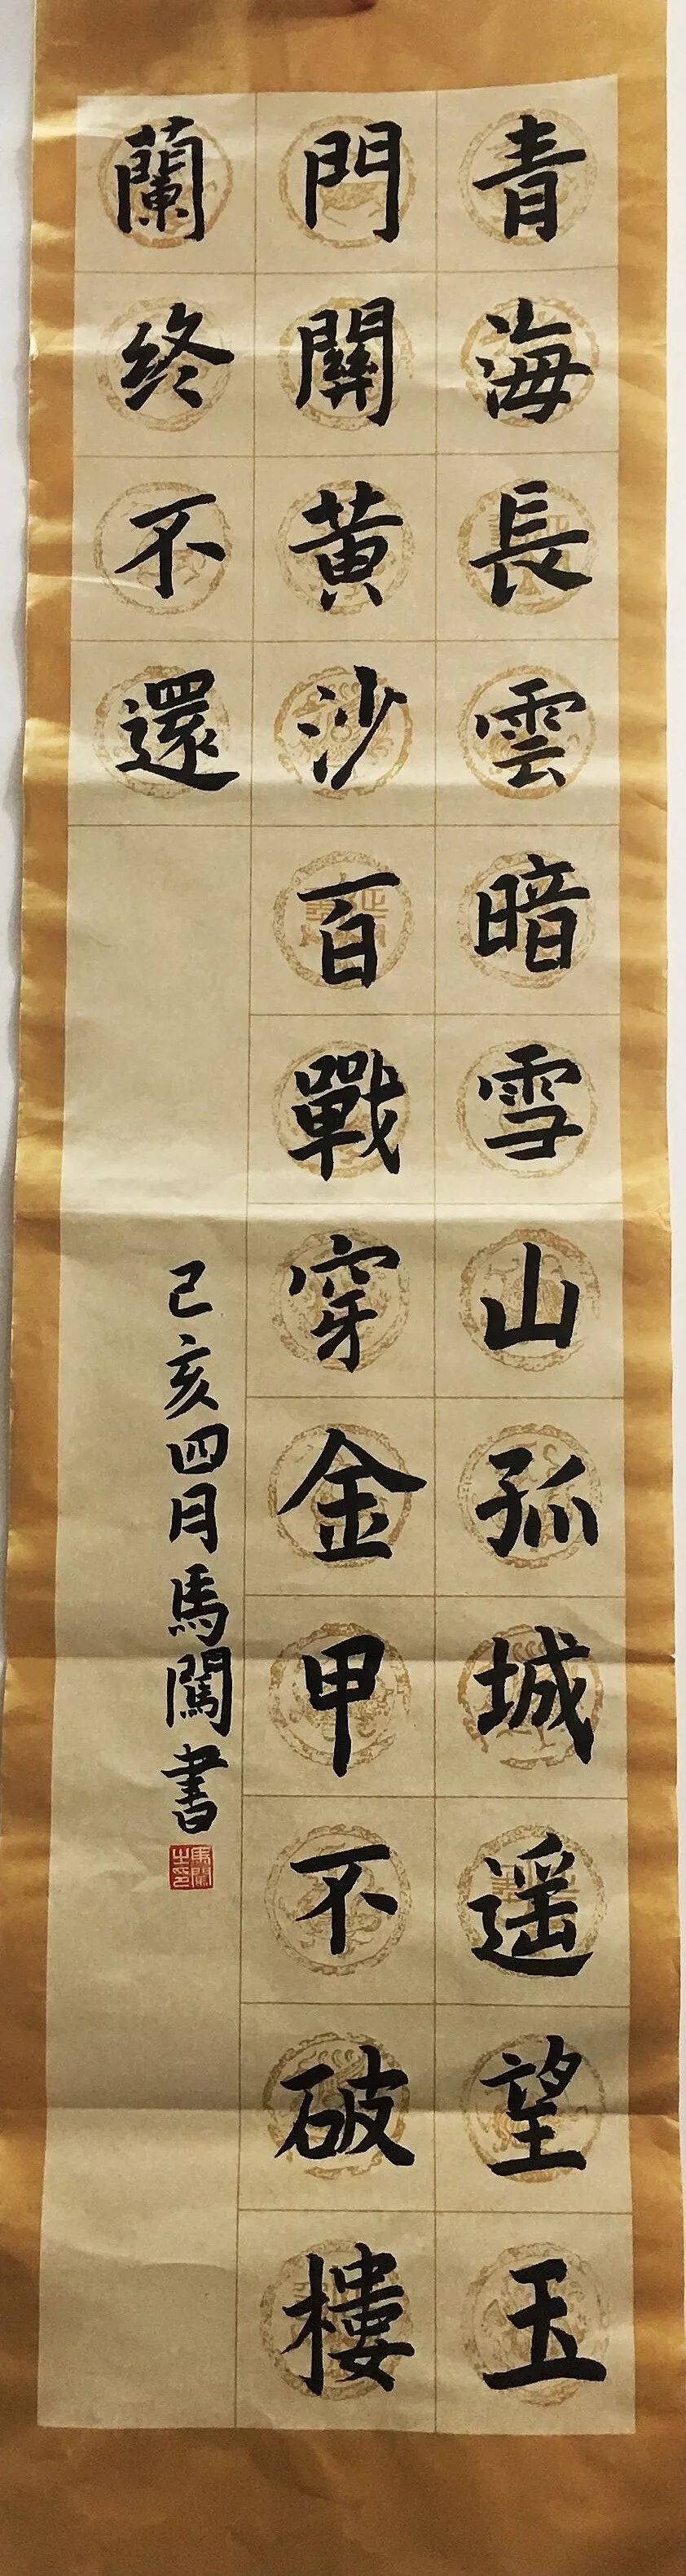 青海長雲暗雪山孤城遥望玉
門關黃沙百戰穿金甲不破樓
蘭終不還
己亥四月馬闖書
馬闖之印